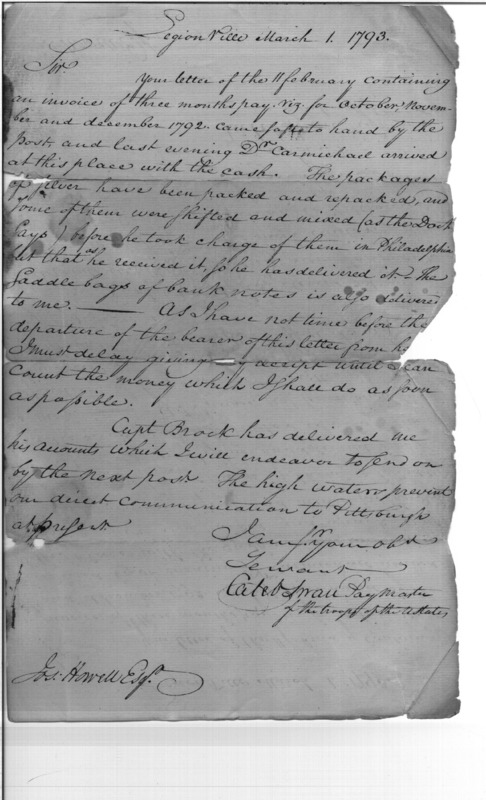 Legion Ville March 1. 1793.
Sir.
Your letter of the 11 february containing
an invoice of three months pay. viz. for October, Novem-
ber and december 1792. came safe to hand by the
post. and last evening Dr. Carmichael arrived
at this place with the cash. The packages
of silver have been packed and repacked, and
some of them were shifted and mixed (as the Doctr
says) before he took charge of them in Philadelphia
but that as he received it, so he has delivered it. The
saddle bags of bank notes is also delivered
to me. — As I have not time before the
departure of the bearer of this letter from he
I must delay giving a receipt until I can
count the money which I shall do as soon
as possible.
Capt Brock has delivered me
his accounts which I will endeavor to send on
by the next post. The high waters prevent
our direct communication to Pittsburgh
at present
I am Sir Your obt
Servant
Caleb Swan Paymaster
of the troops of the UStates
Jos: Howell Esqr.